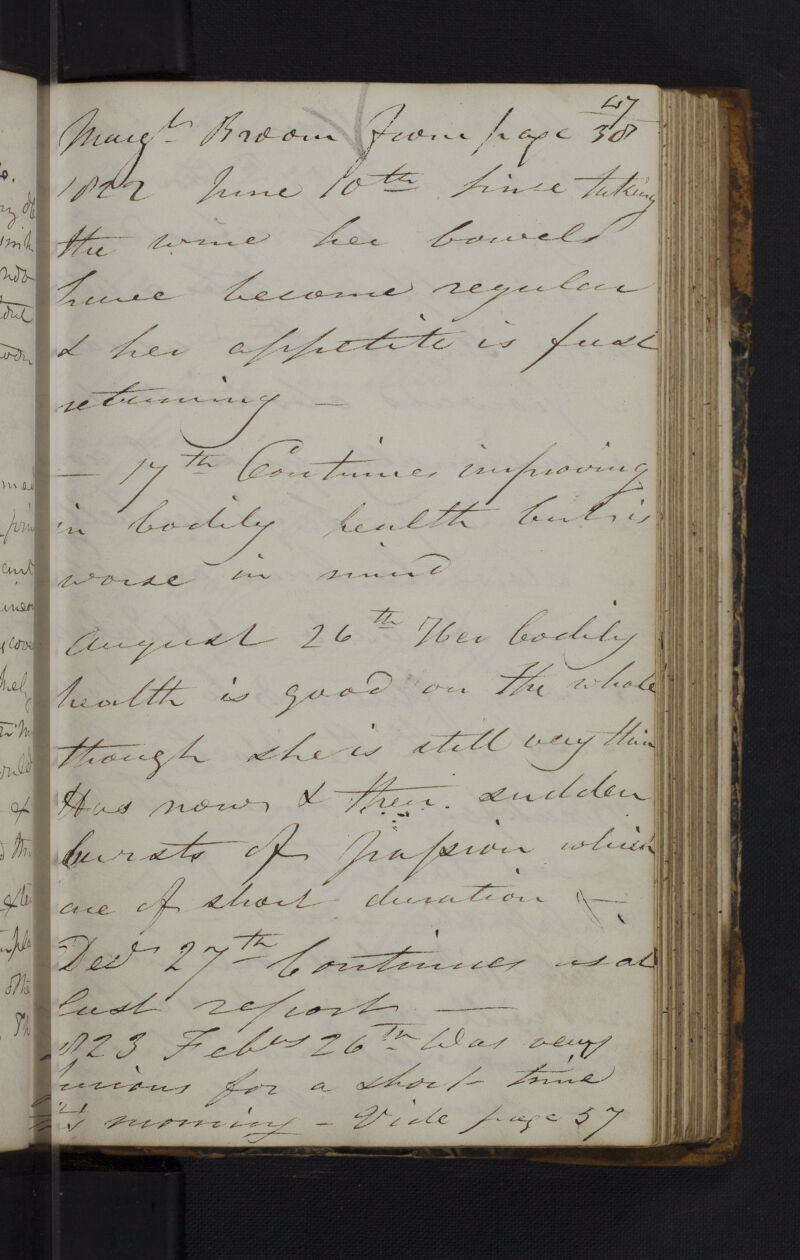 47
Margt. Broom from page 38
1822 June 10th Since taking
the wine her bowels
have become regular
& her appetite is fast
returning —
— 17th Continues improving
in bodily health but is
worse in mind
August 26th Her bodily
health is good on the whole
though she is still very thin
Has now & then sudden
bursts of passion which
are of short duration —
Decr 27th Continues as at
last report —
1823 Feby 26th Was very
furious for a short time
this morning – Vide page 57